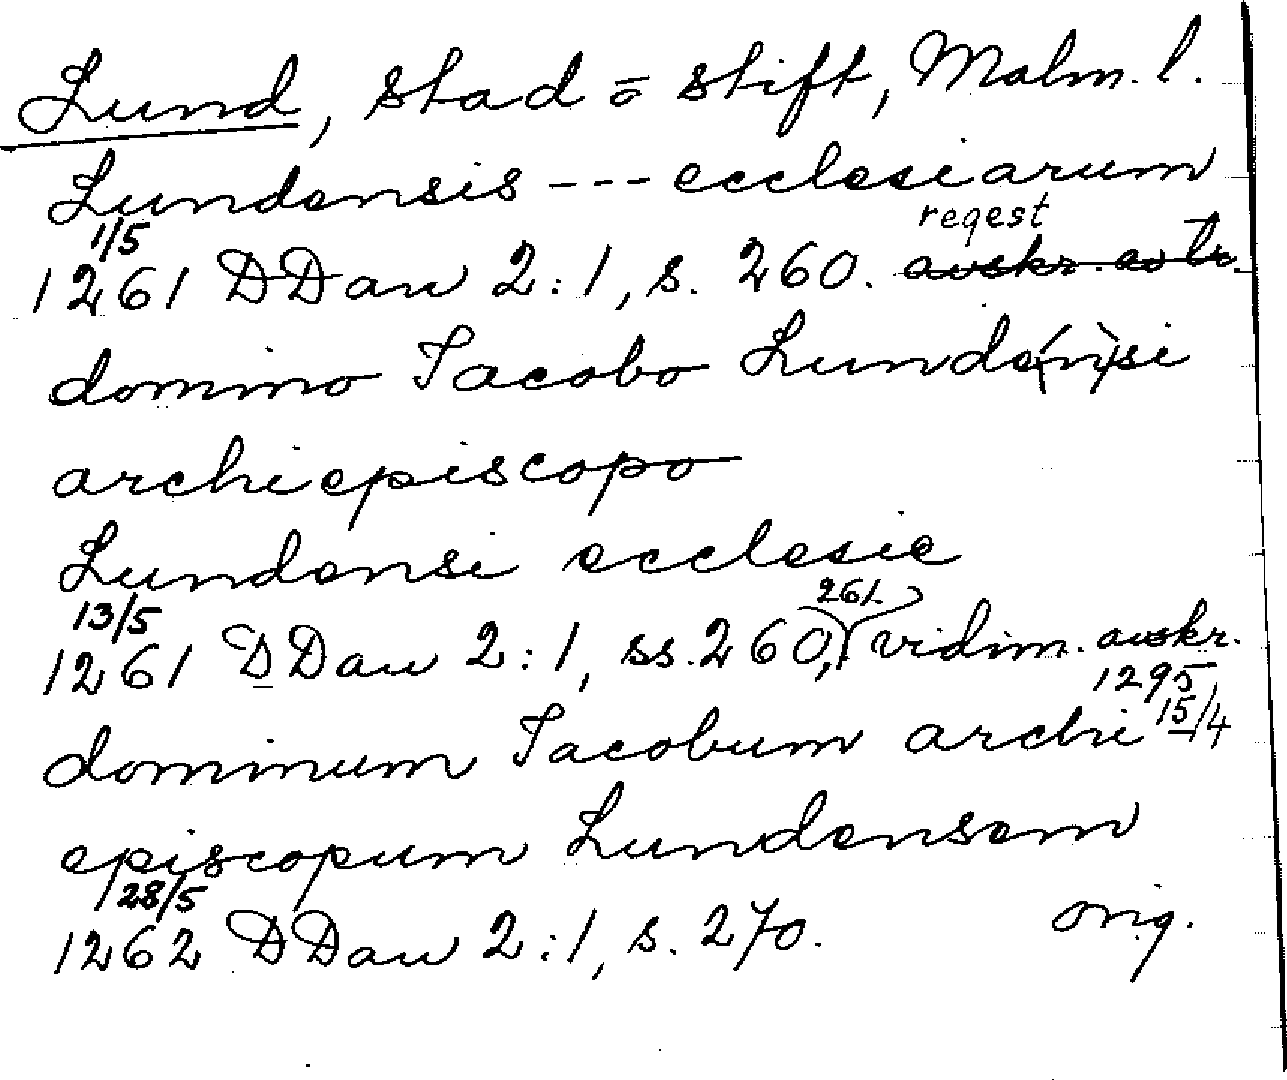 Lund, stad o stift, Malm. l.
Lundensis --- ecclesiarum
1/5 regest
1261 DDan 2:1, s. 260. avskr. av tr.
domino Jacobo Lunde(n)si
archiepiscopo
Lundensi ecclesie
13/5 261
1261 DDan 2:1, ss. 260, vidim. avskr.
1295
dominum Jacobum archi 15/4
episcopum Lundensem
28/5
1262 DDan 2:1, s. 270. orig.